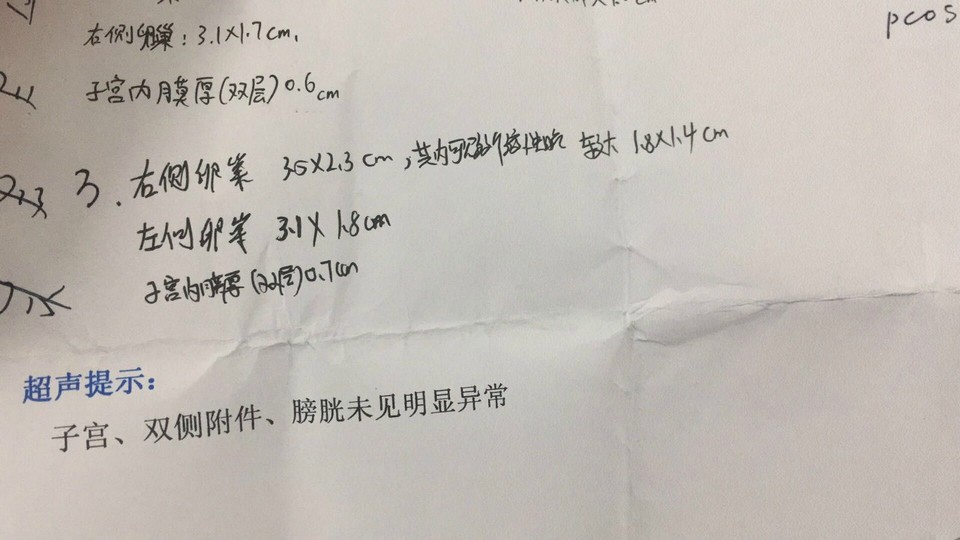 pcos
右侧卵巢：3.1X1.7cm，
子宫内膜厚(双层)0.6cm
3. 右侧卵巢 3.5X2.3cm，其内可见 较大 1.8X1.4cm
左侧卵巢 3.1X1.8cm
子宫内膜厚(双层)0.7cm
超声提示：
子宫、双侧附件、膀胱未见明显异常